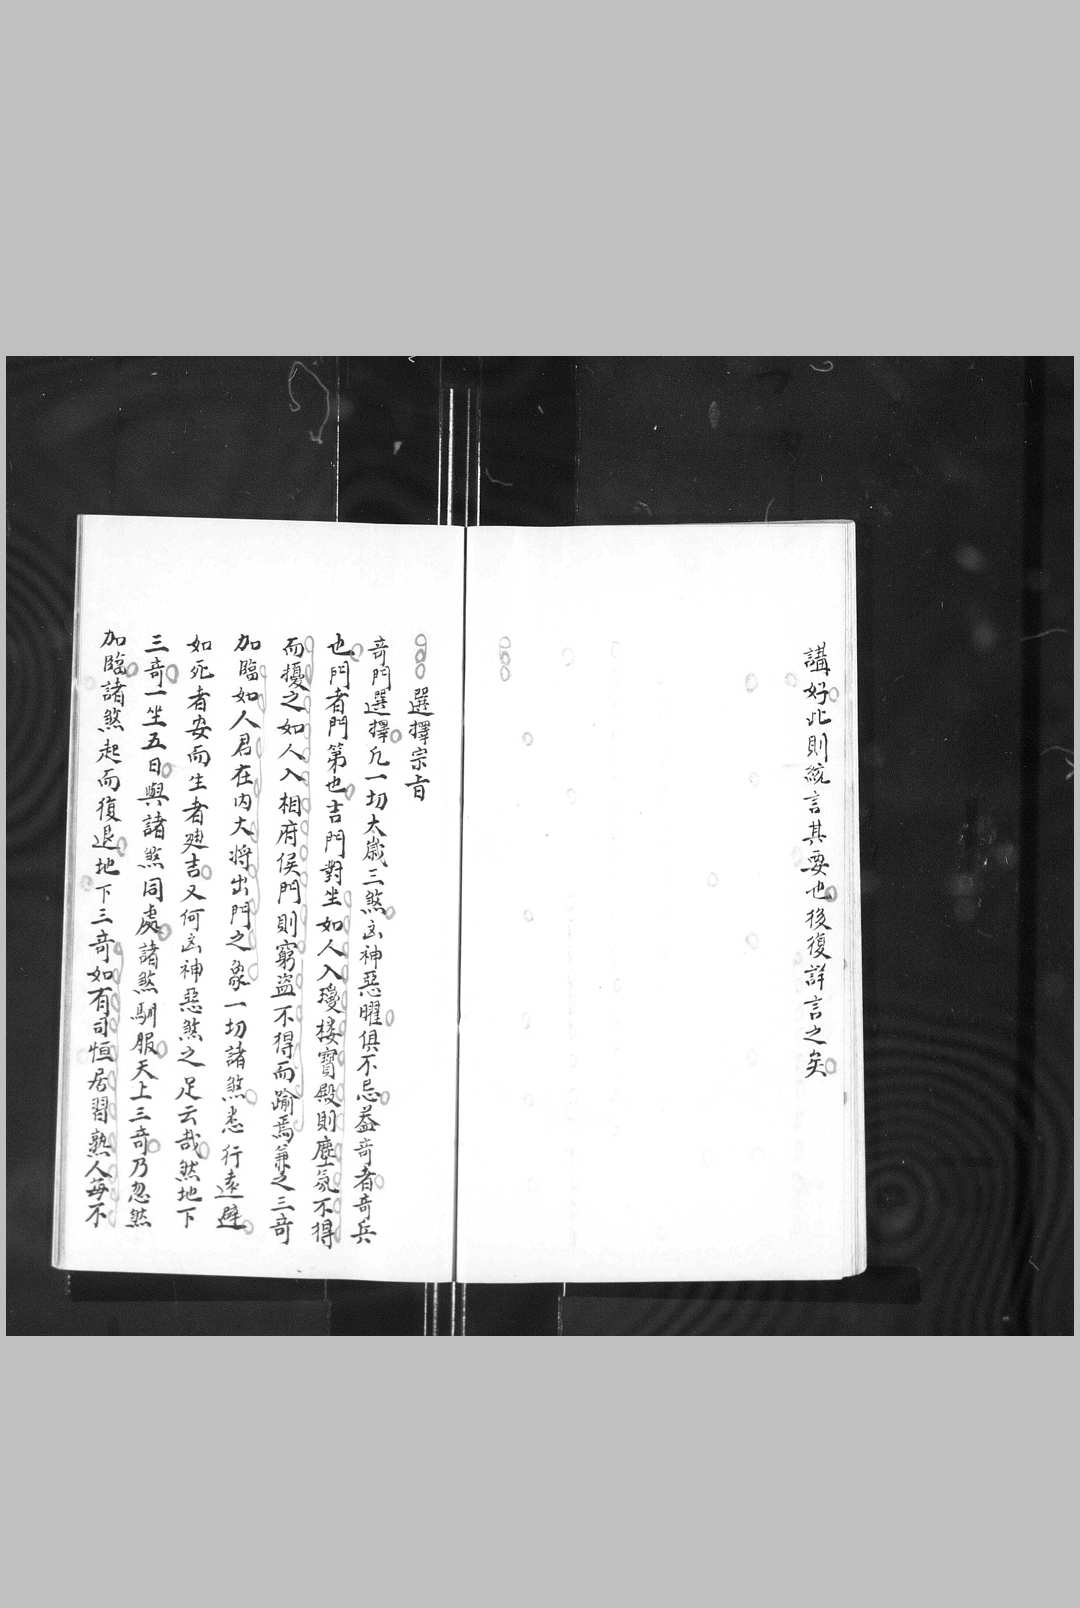 講好此則統言其要也後復詳言之矣
選擇宗旨
奇門選擇凢一切太歲三煞凶神惡曜俱不忌益奇者奇兵
也門者門第也吉門對坐如人入瓊楼寶殿則塵氛不得
而擾之如人入相府侯門則窮盜不得而踰焉兼之三奇
加臨如人君在内大将出門之象一切諸煞悉行遠避
如死者安而生者廸吉又何凶神惡煞之足云哉然地下
三奇一坐五日與諸煞同處諸煞馴服天上三奇乃忽然
加臨諸煞起而復退地下三奇如有司恒居習熟人每不